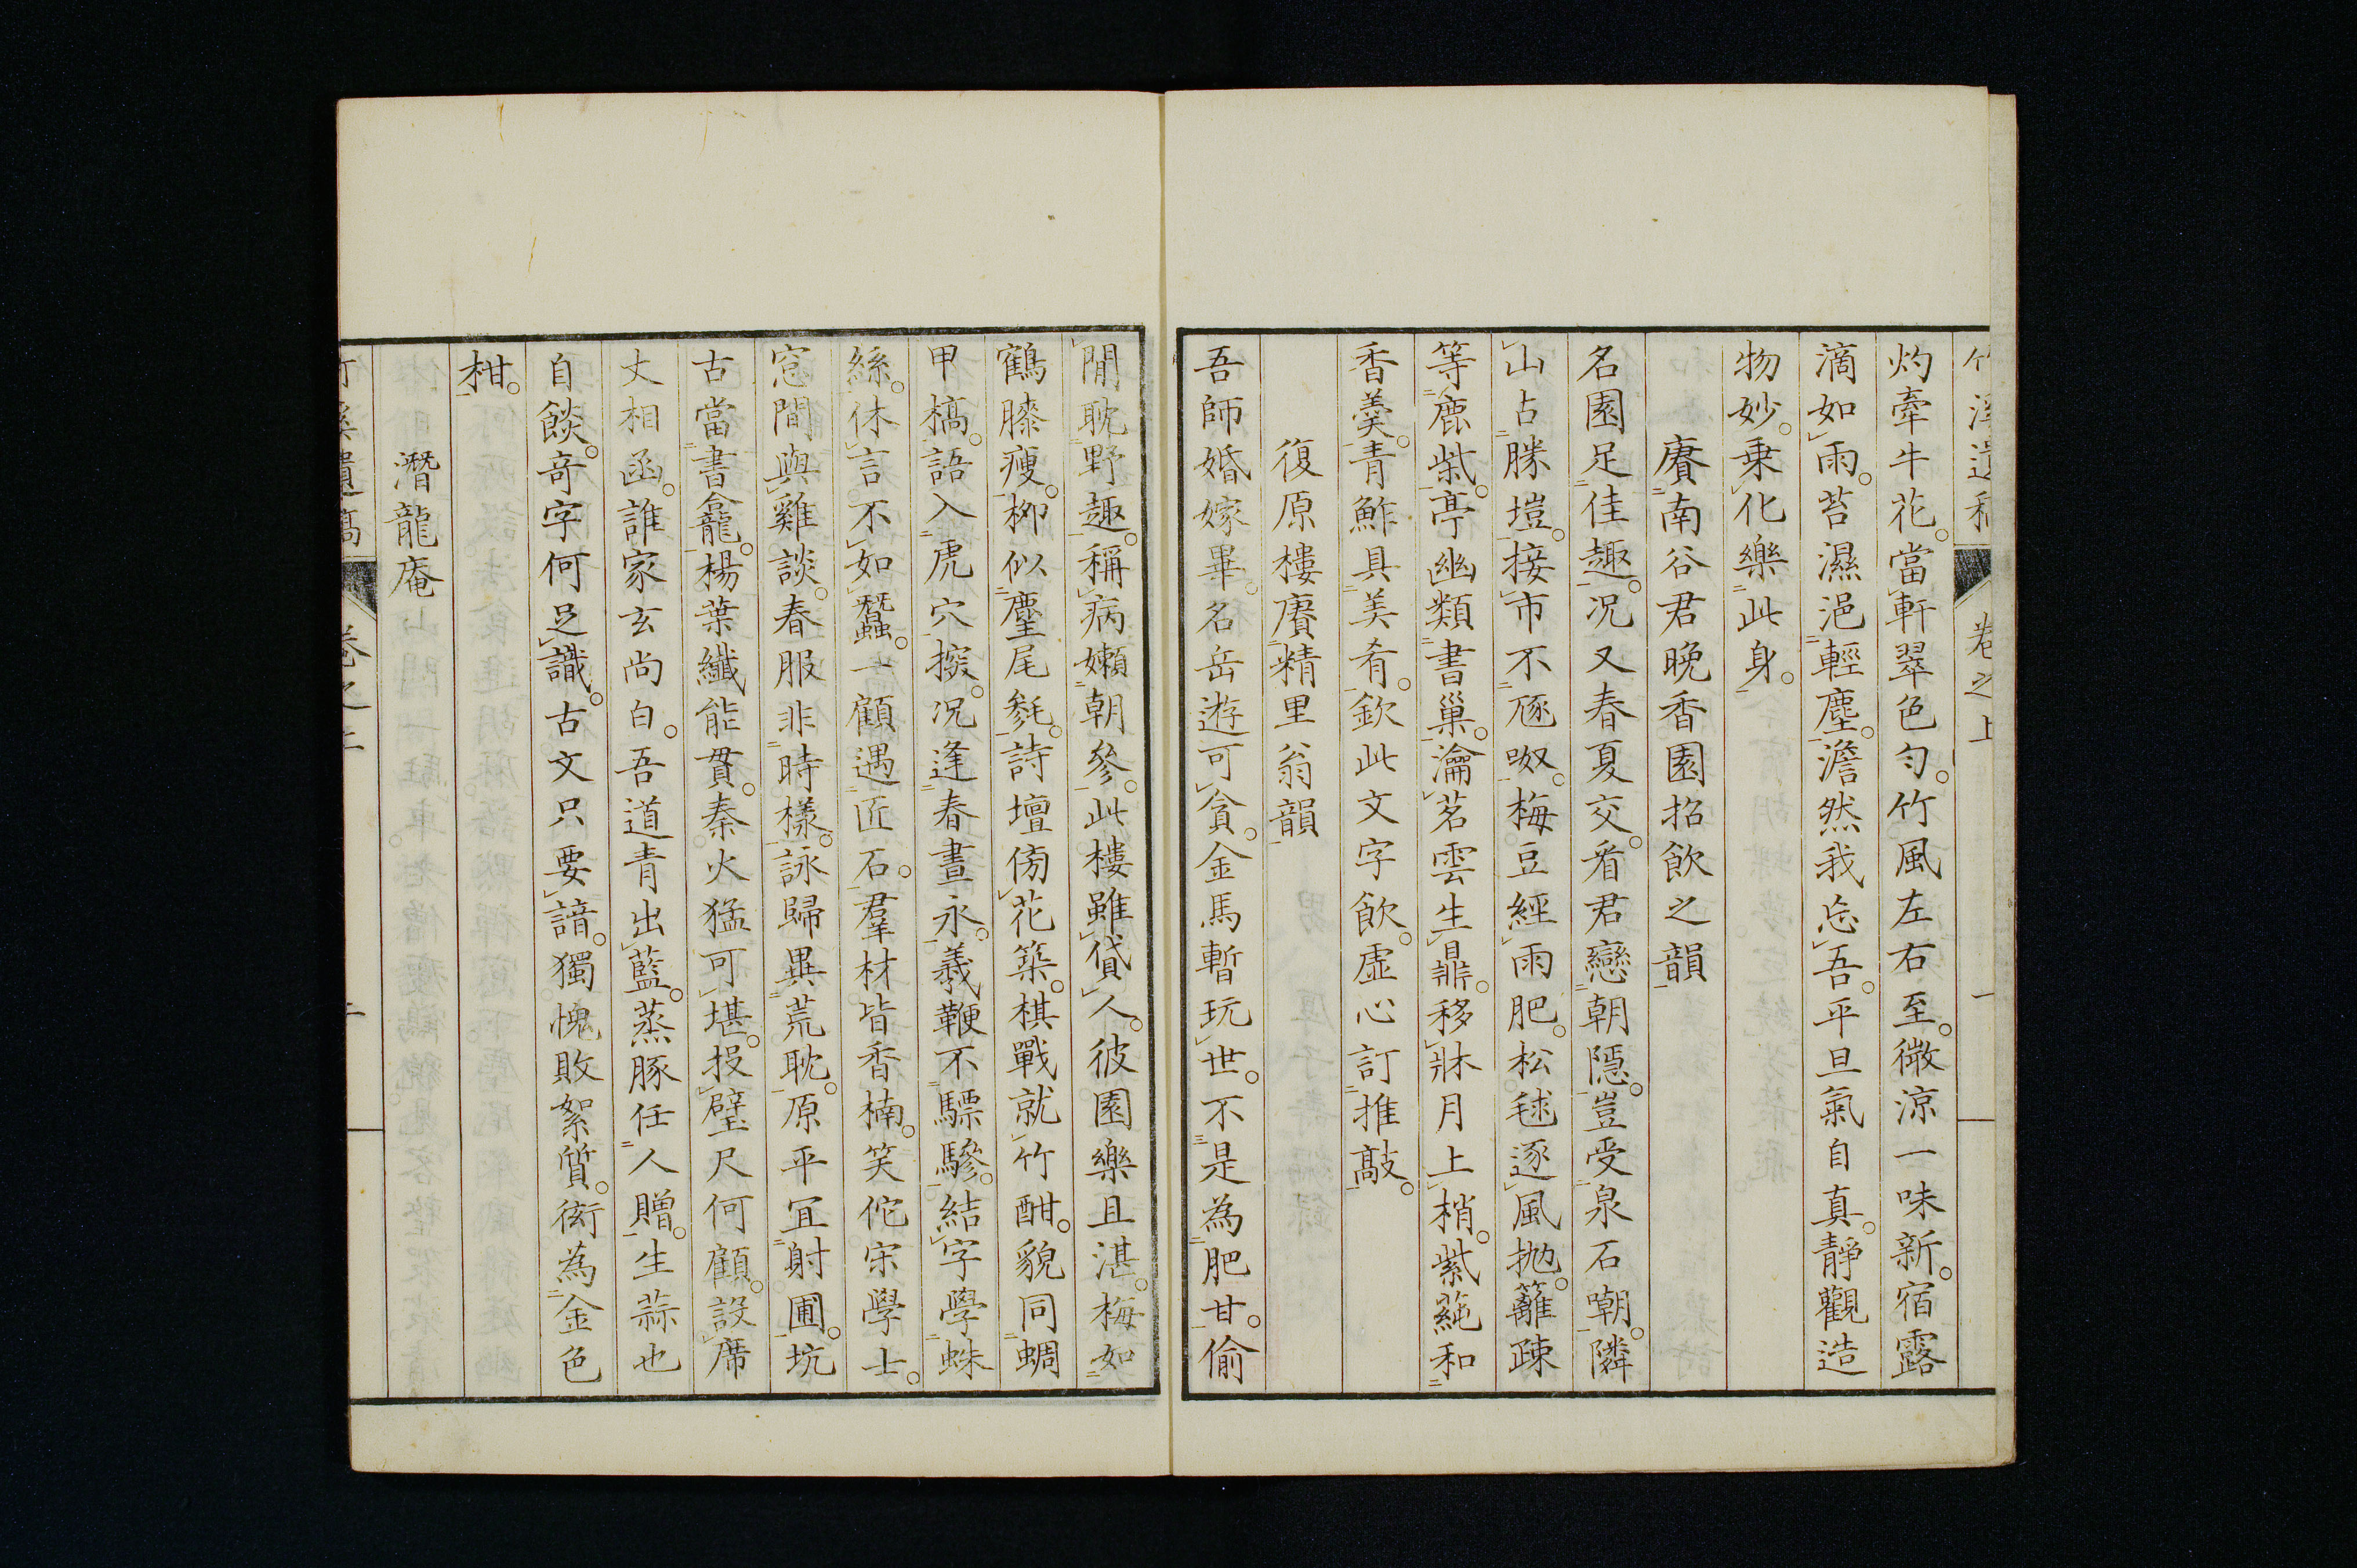 竹溪遺稿 卷之上 一
灼牽牛花。當軒翠色勻。竹風左右至。微涼一味新。宿露
滴如雨。苔濕浥輕塵。澹然我忘吾。平旦氣自真。靜觀造
物妙。乗化樂此身。
賡南谷君晚香園招飲之韻
名園足佳趣。况又春夏交。看君戀朝隱。豈受泉石嘲。隣
山占勝塏。接市不豗呶。梅豆經雨肥。松毬逐風抛。籬疎
等鹿柴。亭幽類書巢。瀹茗雲生鼎。移牀月上梢。紫蒓和
香羮。青鮓具美肴。欽此文字飲。虛心訂推敲。
復原樓賡精里翁韻
吾師婚嫁畢。名岳遊可貪。金馬暫玩世。不是為肥甘。偷
閒耽野趣。稱病嬾朝參。此樓雖貸人。彼園樂且湛。梅如
鶴膝瘦。柳似麈尾毿。詩壇傍花築。棋戰就竹酣。貌同蜩
甲槁。語入虎穴探。况逢春晝永。羲鞭不驃驂。結字學蛛
絲。休言不如蠶。一顧遇匠石。羣材皆香楠。笑佗宋學士。
窓間與雞談。春服非時樣。詠歸異荒耽。原平冝射圃。坑
古當書龕。楊葉纖能貫。秦火猛可堪。投璧尺何顧。設席
丈相函。誰家玄尚白。吾道青出藍。蒸豚任人贈。生蒜也
自餤。奇字何足識。古文只要諳。獨愧敗絮質。衒為金色
柑。
潛龍庵
竹溪遺稿 卷之上 二